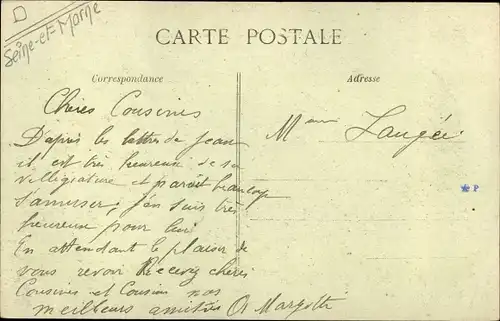 Seine-et-Marne
CARTE POSTALE
Correspondance
Adresse
Chères Cousines
D'après les lettres de Jean
il est très heureux de sa
villégiature et parait beaucoup
s'amuser, j'en suis très
heureux pour lui
En attendant le plaisir de
vous revoir Recevez chères
Cousines et Cousin nos
meilleurs amitiés
Mme
P